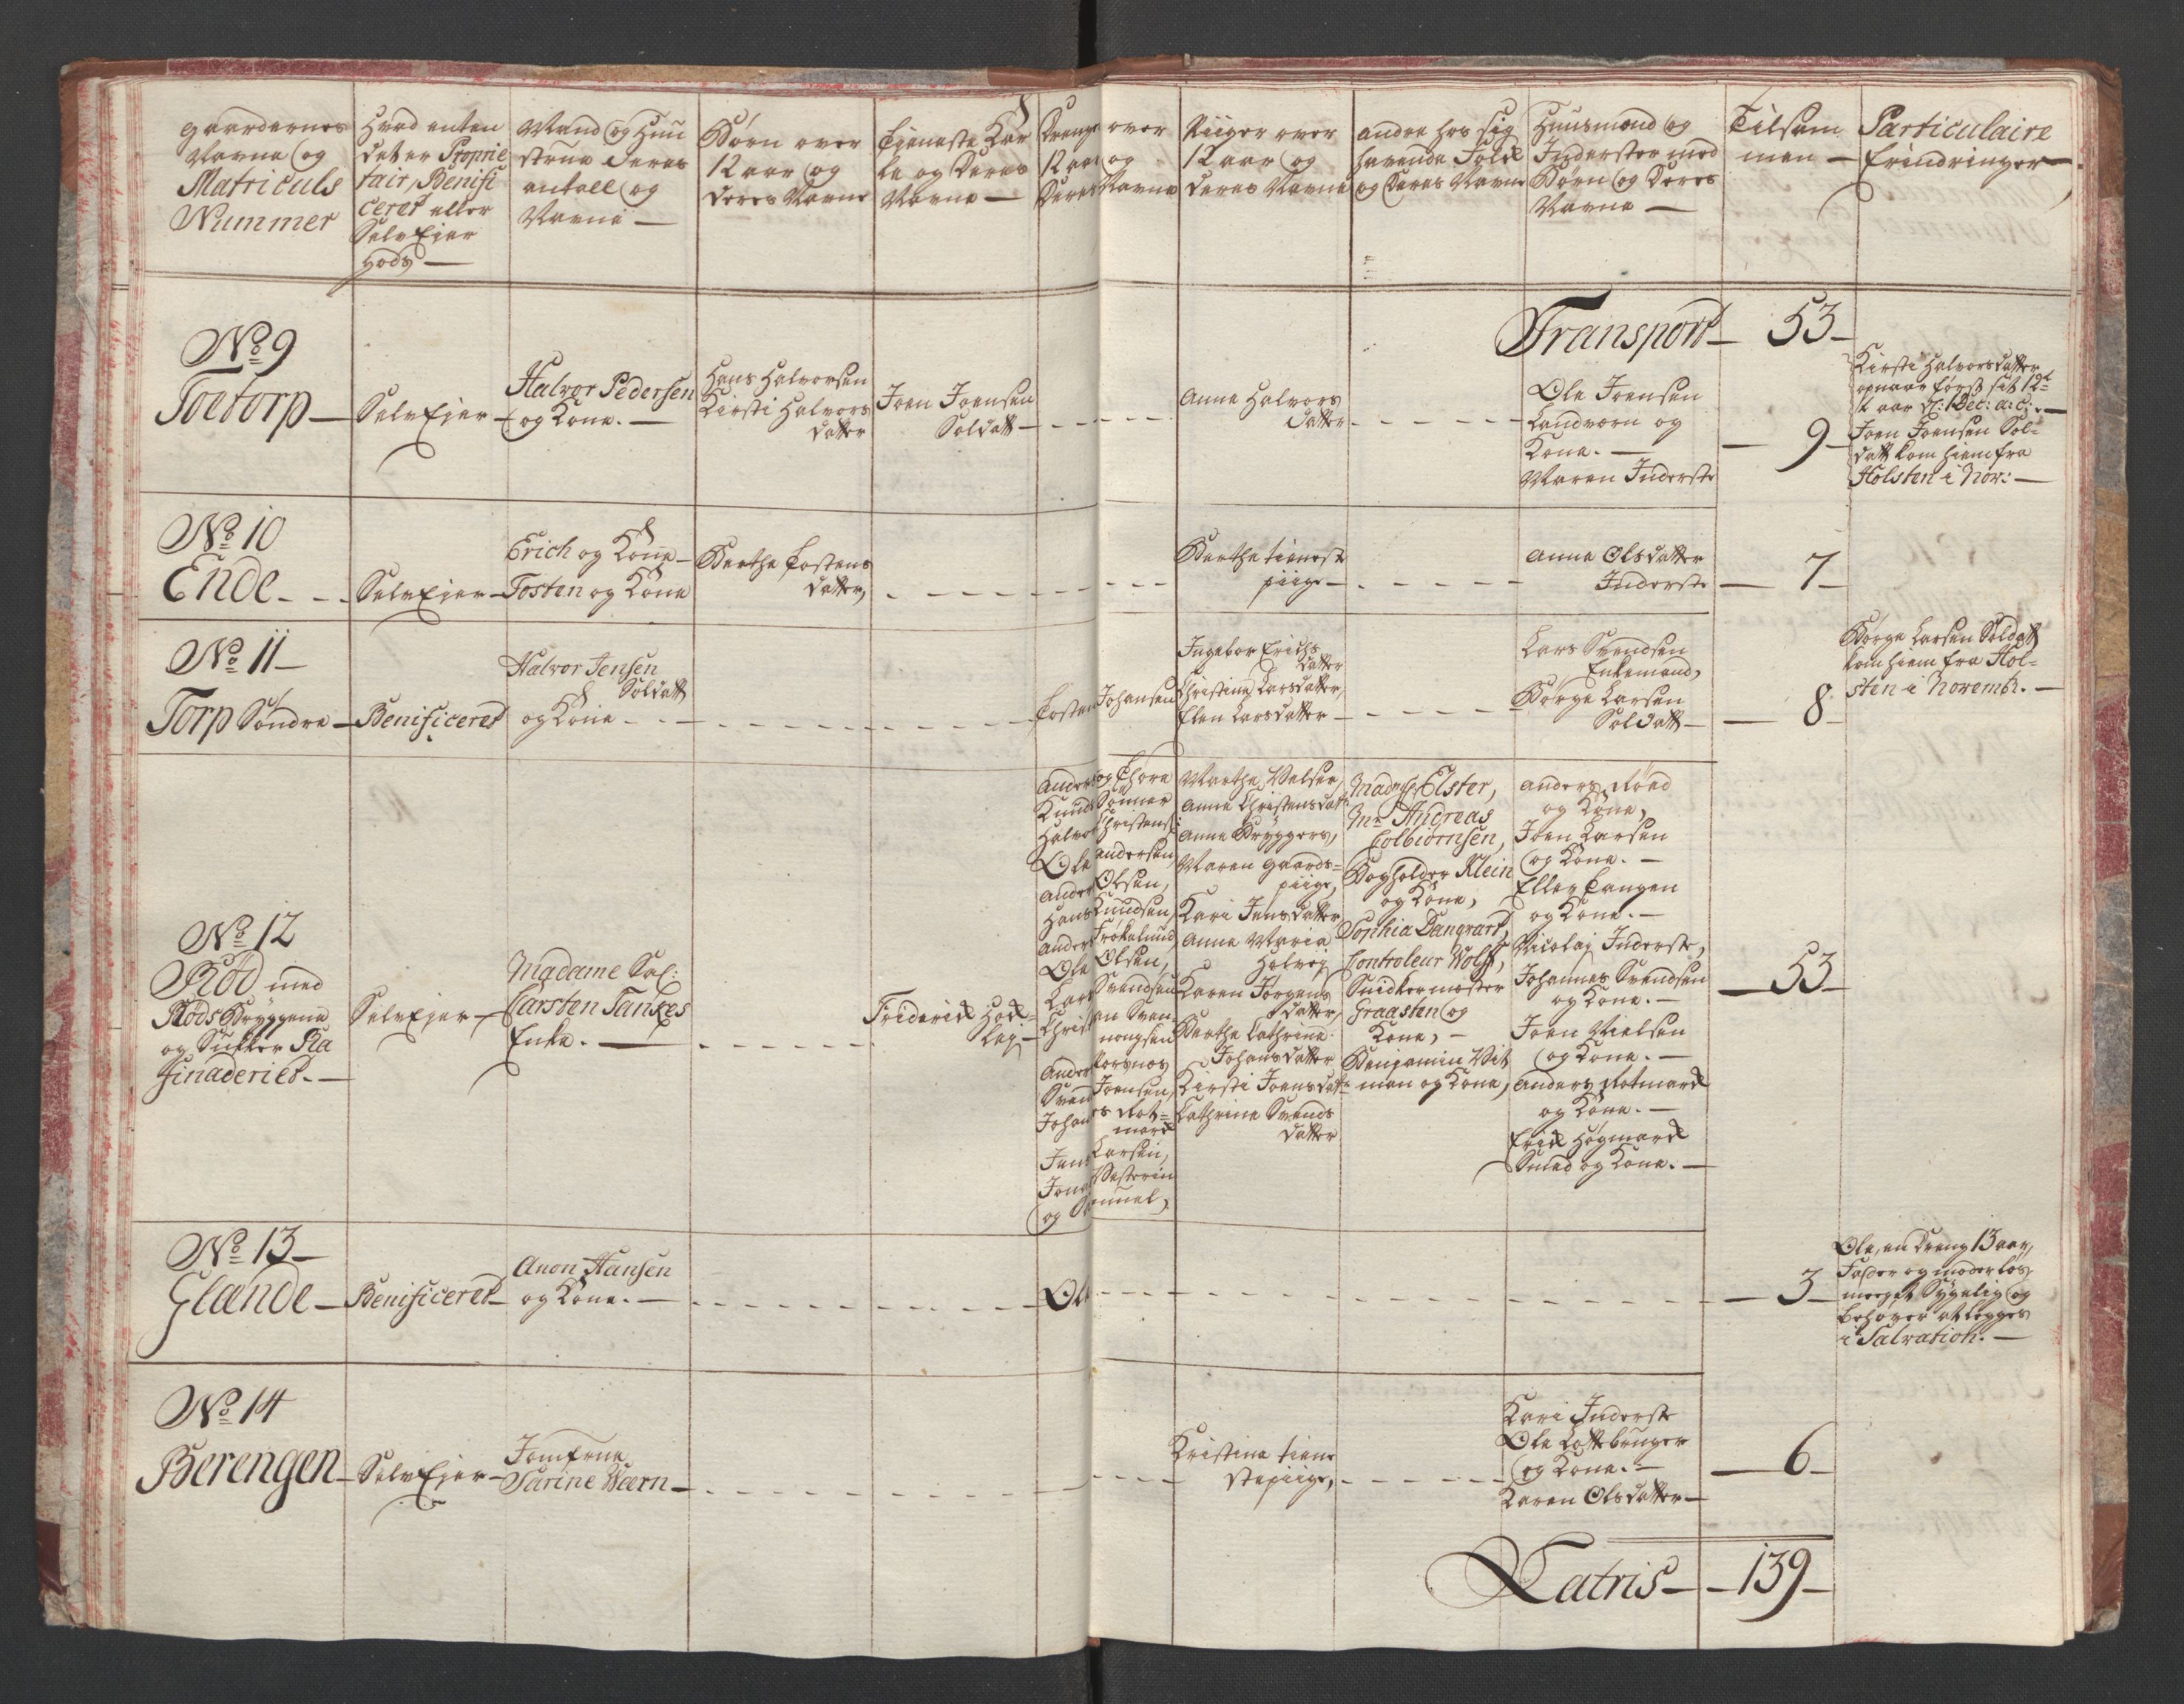 Gaardernes
Navne og
Matriculs
Nummer
Hvad enten
det er Proprie
tair, Benifi
ceret eller
SelvEjer
Gods —
Mand og Huu
strue deres
antall og
Navne —
Børn over
12 aar og
deres Navne
Tieneste Kar
le og deres
Navne —
Drenge over
12 aar og
deres Navne
Piiger over
12 aar og
deres Navne
andre hos sig
havende Folk
og deres Navne
Huusmænd og
Inderster med
Børn og deres
Navne —
Tilsam
men —
Particulaire
Erindringer —
Transport — 53 —
No 9
Toetorp —
SelvEjer —
Halvor Pedersen
og Kone. —
Hans Halvorsen
Kirsti Halvors
datter
Joen Joensen
Soldatt —
Anne Halvors
datter
Ole Joensen
Landværn og
Kone. —
Maren Inderste
— 9 —
Kirsti Halvorsdatter
opnaar først sit 12te
aar d: 1 Dec: a: c: —
Joen Joensen Sol-
datt kom hiem fra
Holsten i Nov: —
No 10
Ende — —
SelvEjer —
Erich og Kone —
Tosten og Kone
Berthe Tostens
datter,
Berthe tieneste
piige —
Anne Olsdatter
Inderste
— 7 —
No 11 —
Torp Søndre —
Benificeret
Halvor Jensen
Soldatt
og Kone — —
Tosten Johansen
Ingebor Erichs
datter
Christine Larsdatter,
Elen Larsdatter —
Lars Svendsen
Enkemand,
Børge Larsen
Soldatt —
— 8 —
Børge Larsen Soldatt
kom hiem fra Hol-
sten i Novembr. —
No 12
Rød med
Røds Bryggene
og Sukker Ra
finaderiet. —
SelvEjer —
Madame Sal:
Carsten Tankes
Enke. —
Friderik
Anders og Thore
Knuds Sønner
Halvor Christens:
Ole Andersen,
Anders Olsen,
Hans Knudsen,
Anders
Ole Olsen,
Lars Svendsen
Christian Sven
Anders
Svend Joensen,
Johannes Rot-
mark
Jens Larsen,
Marthe
Anne Christensdatt:
Anne Bryggers,
Maren Gaards-
piige,
Kari Jensdatter
Anne Maria
Karen Jørgens
datter,
Berthe Cathrine
Johansdatter
Kirsti Joensdatt:
Cathrine Svends
datter
Madme Elster,
Mr Andreas
Colbiørnsen,
Bogholder Klein
og Kone,
Sophia Dangrart,
Controleur Wolff,
Snidkermester
Graasten og
Kone, —
Benjamin Vit
man og Kone,
Anders Røed
og Kone,
Joen Larsen
og Kone. —
Ellev Tangen
og Kone. —
Nicolaj Inderste,
Johannes Svendsen
og Kone. —
Joen Nielsen
og Kone. —
Anders Rotmark
og Kone. —
Erik Høgmark
Smed og Kone. —
— 53 —
No 13 —
Glænde —
Benificeret —
Anon Hansen
og Kone. —
Ole
— 3 —
Ole, en Dreng 13 aar,
Fader og moderløs
meeget Sygelig og
behøver at legges
i Salvation. —
No 14
Berengen —
SelvEjer —
Jomfrue
Sarine Wærn —
Kristine tiene
stepiige,
Kari Inderste
Ole
og Kone. —
Karen Olsdatter —
— 6 —
Latris — 139 —